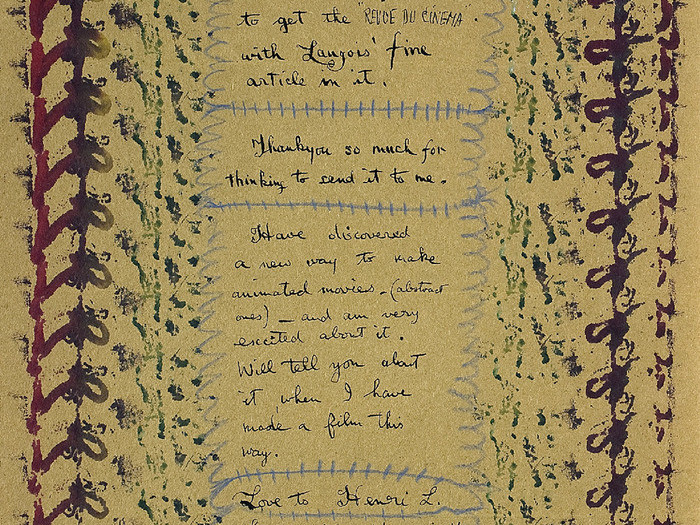 to get the "REVUE DU CINEMA".
with Langois' fine
article in it.
Thankyou so much for
thinking to send it to me.
Have discovered
a new way to make
animated movies - (abstract
ones) - and am very
excited about it.
Will tell you about
it when I have
made a film this
way.
Love to Henri L